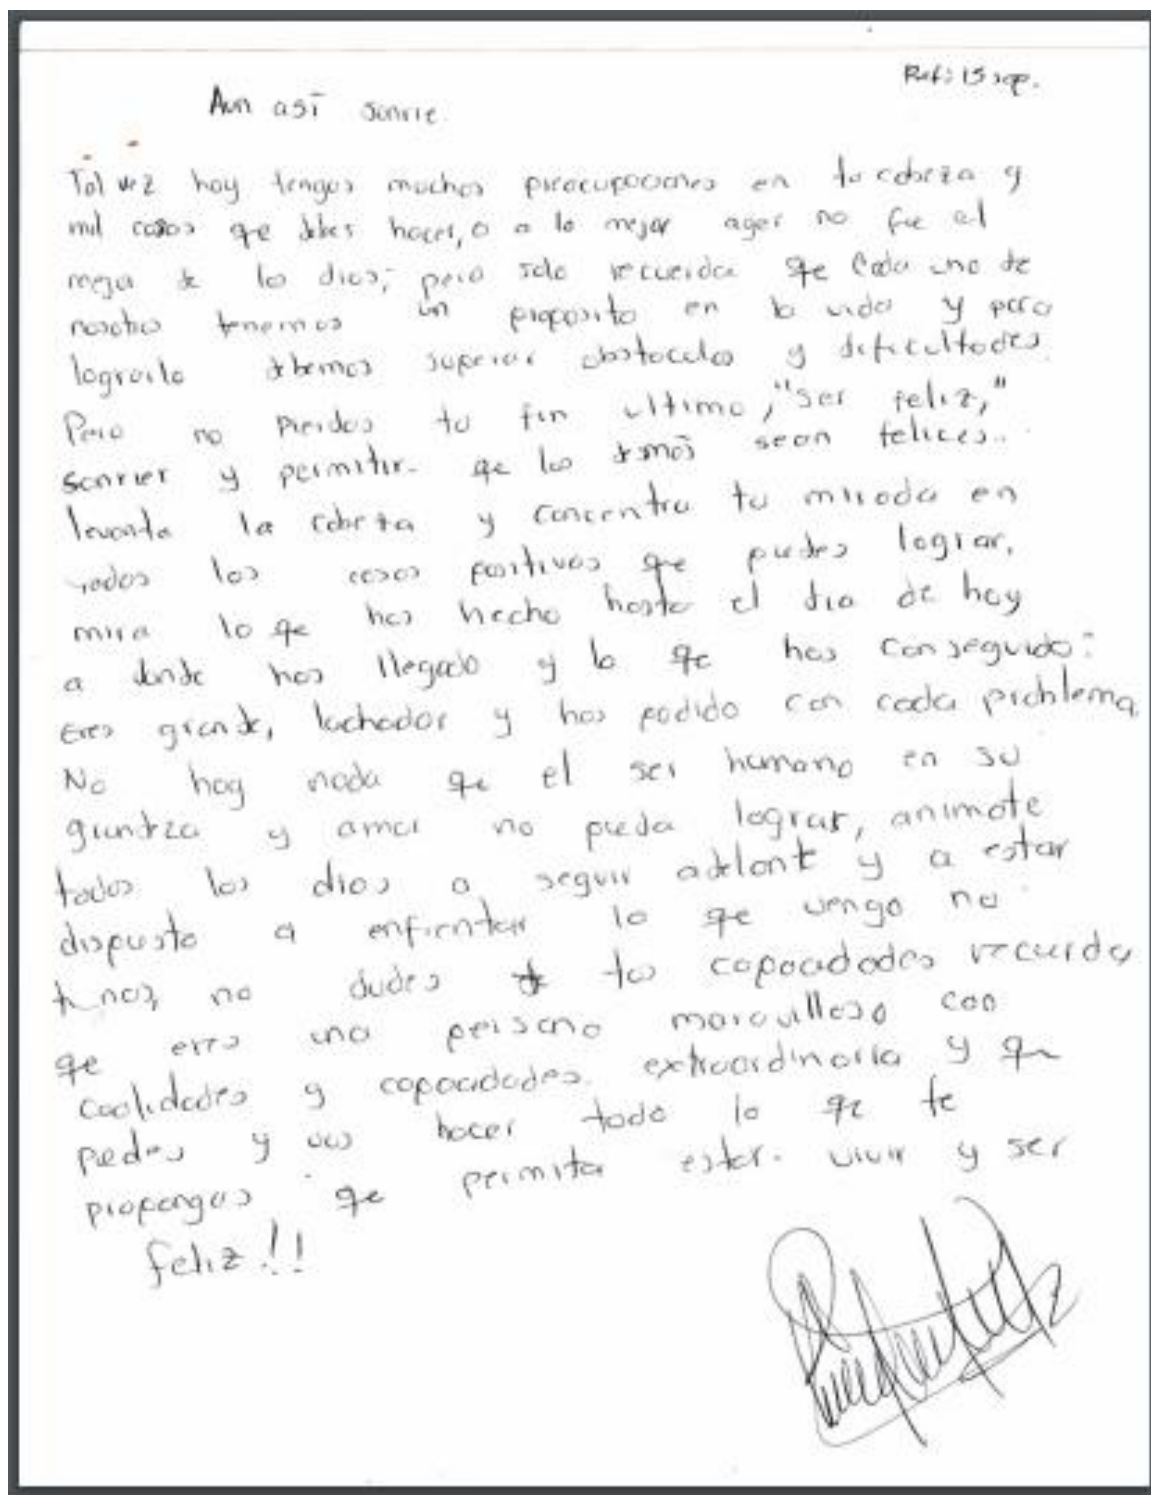 Ref: 15 sep.
Aun así sonrie.
Tal vez hoy tengas muchas preocupaciones en tu cabeza y
mil cosas que debes hacer, o a lo mejor ayer no fue el
mejor de los dias; pero solo recuerda que Cada uno de
nosotros tenemos un proposito en la vida y para
lograrlo debemos superar obstaculos y dificultades.
Pero no pierdas tu fin ultimo, "ser feliz,"
sonrier y permitir que los demás sean felices..
levanta la cabeza y concentra tu mirada en
todas las cosas positivas que puedes lograr,
mira lo que has hecho hasta el dia de hoy
a donde has llegado y lo que has conseguido:
eres grande, luchador y has podido con cada problema,
No hay nada que el ser humano en su
grandeza y amor no pueda lograr, animate
todos los dias a seguir adelante y a estar
dispuesto a enfrentar lo que venga no
temas, no dudes de tus capacidades recuerda
que eres una persona maravillosa con
cualidades y capacidades extraordinaria y que
puedes y vas hacer todo lo que te
propongas que permita estar. vivir y ser
feliz!!